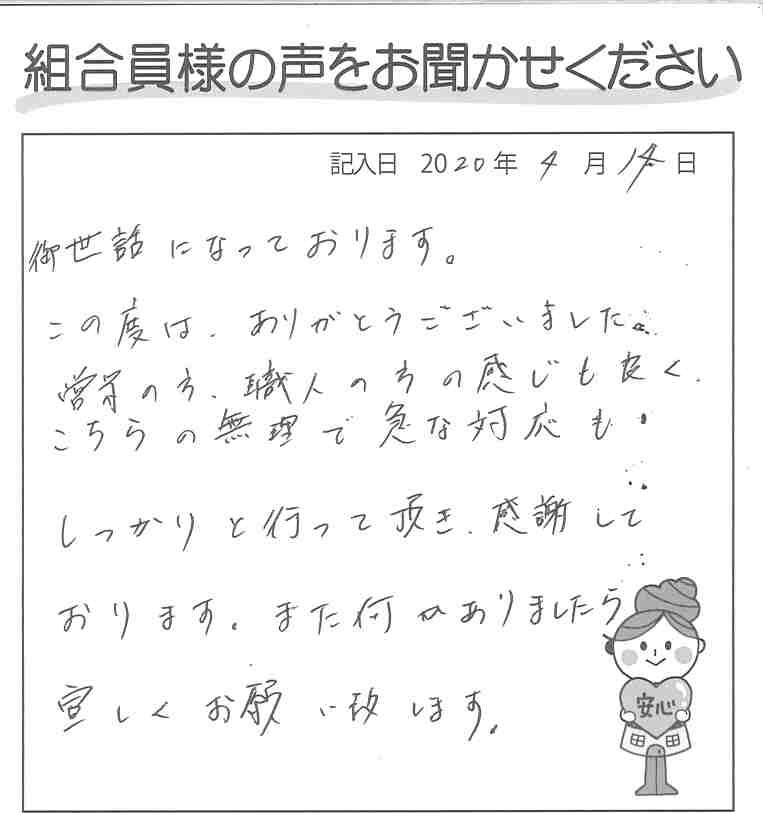 組合員様の声をお聞かせください
記入日 2020年 4月 日
御世話になっております。
この度は、ありがとうございました。
の方、職人の方の感じも良く、
こちらの無理で急な対応も
しっかりと行って頂き、感謝して
おります。また何かありましたら
宜しくお願い致します。
安心